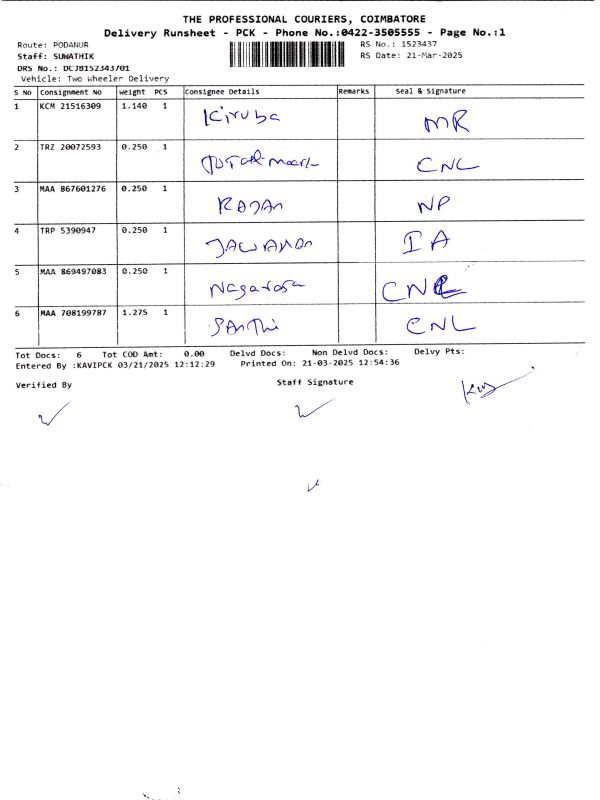 THE PROFESSIONAL COURIERS, COIMBATORE
Delivery Runsheet - PCK - Phone No.:0422-3505555 - Page No.:1
Route: PODANUR RS No.: 1523437
Staff: SUWATHIK RS Date: 21-Mar-2025
DRS No.: DCJB152343701
Vehicle: Two Wheeler Delivery
S No Consignment No Weight PCS Consignee Details Remarks Seal & Signature
1 KCM 21516309 1.140 1 Kiruba MR
2 TRZ 20072593 0.250 1 CNL
3 MAA 867601276 0.250 1 RAJAN NP
4 TRP 5390947 0.250 1 IA
5 MAA 869497083 0.250 1 CNL
6 MAA 708199787 1.275 1 SANThi CNL
Tot Docs: 6 Tot COD Amt: 0.00 Delvd Docs: Non Delvd Docs: Delvy Pts:
Entered By :KAVIPCK 03/21/2025 12:12:29 Printed On: 21-03-2025 12:54:36
Verified By Staff Signature